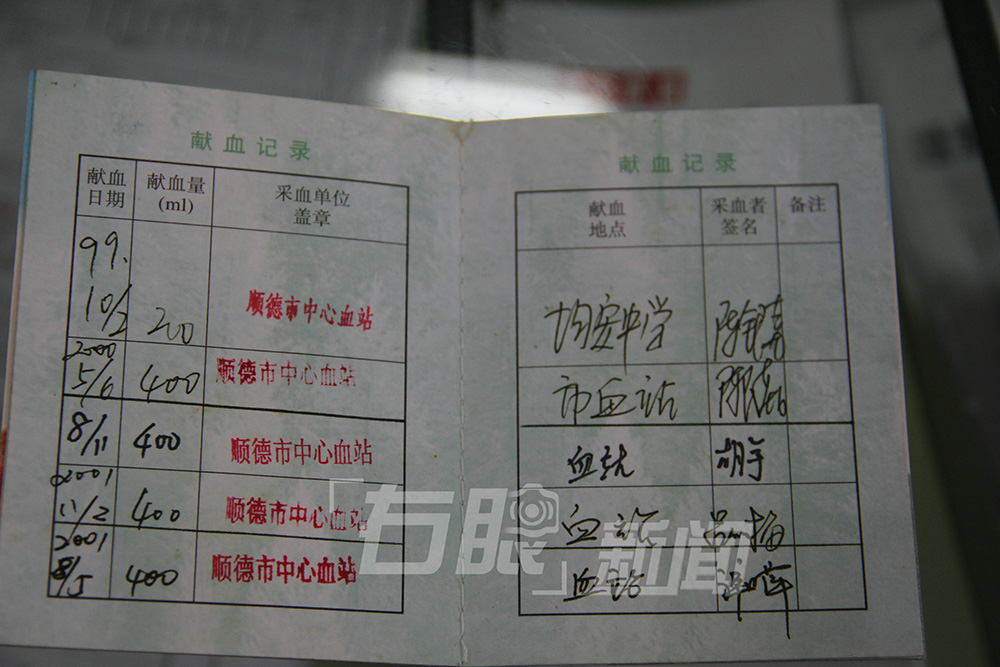 献血记录
献血日期 献血量(ml) 采血单位盖章
99.
10/2 200 顺德市中心血站
2000
5/6 400 顺德市中心血站
8/11 400 顺德市中心血站
2001
11/2 400 顺德市中心血站
2001
8/5 400 顺德市中心血站
献血记录
献血地点 采血者签名 备注
均安中学
市血站
血站 胡宇
血站
血站
「右眼 新闻